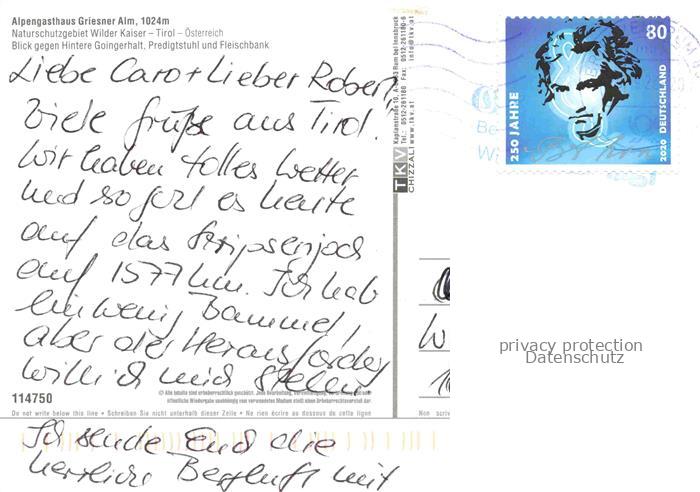 Alpengasthaus Griesner Alm, 1024m
Naturschutzgebiet Wilder Kaiser – Tirol – Österreich
Blick gegen Hintere Goingerhalt, Predigtstuhl und Fleischbank
Liebe Caro + Lieber Robert,
Viele Grüße aus Tirol.
Wir haben tolles Wetter
und so geht es heute
auf das Stripsenjoch
auf 1577 hm. Ich hab
ein wenig Bammel,
aber der Herausforder
will ich mich stellen
114750
© Alle Inhalte sind urheberrechtlich geschützt.
Do not write below this line • Schreiben Sie nicht unterhalb dieser Zeile • Ne rien écrire au dessous de cette ligne
Ich sende Euch die
herzliche Bergluft mit
TKV
CHIZZALI
www.tkv.at
info@tkv.at
80
250 JAHRE
2020 DEUTSCHLAND
Be
Wi
W
privacy protection
Datenschutz
Non scriv